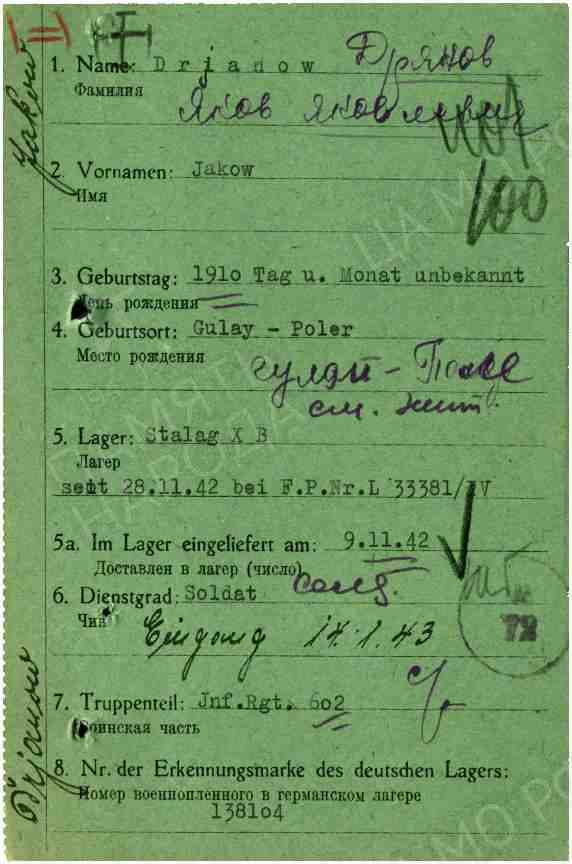 1. Name: Drjanow Дрянов
Фамилия
Яков Яковлевич
100
2. Vornamen: Jakow
Имя
3. Geburtstag: 1910 Tag u. Monat unbekannt
День рождения
4. Geburtsort: Gulay - Poler
Место рождения
гуляй - Поле
см. жит.
5. Lager: Stalag X B
Лагерь
seit 28.11.42 bei F.P.Nr.L 33381/IV
5a. Im Lager eingeliefert am: 9.11.42
Доставлен в лагерь (число)
6. Dienstgrad: Soldat солд.
Чин
Eingang 14.1.43
72
7. Truppenteil: Jnf.Rgt. 602
Воинская часть
8. Nr. der Erkennungsmarke des deutschen Lagers:
Номер военнопленного в германском лагере
138104
Jakow
Drjanow